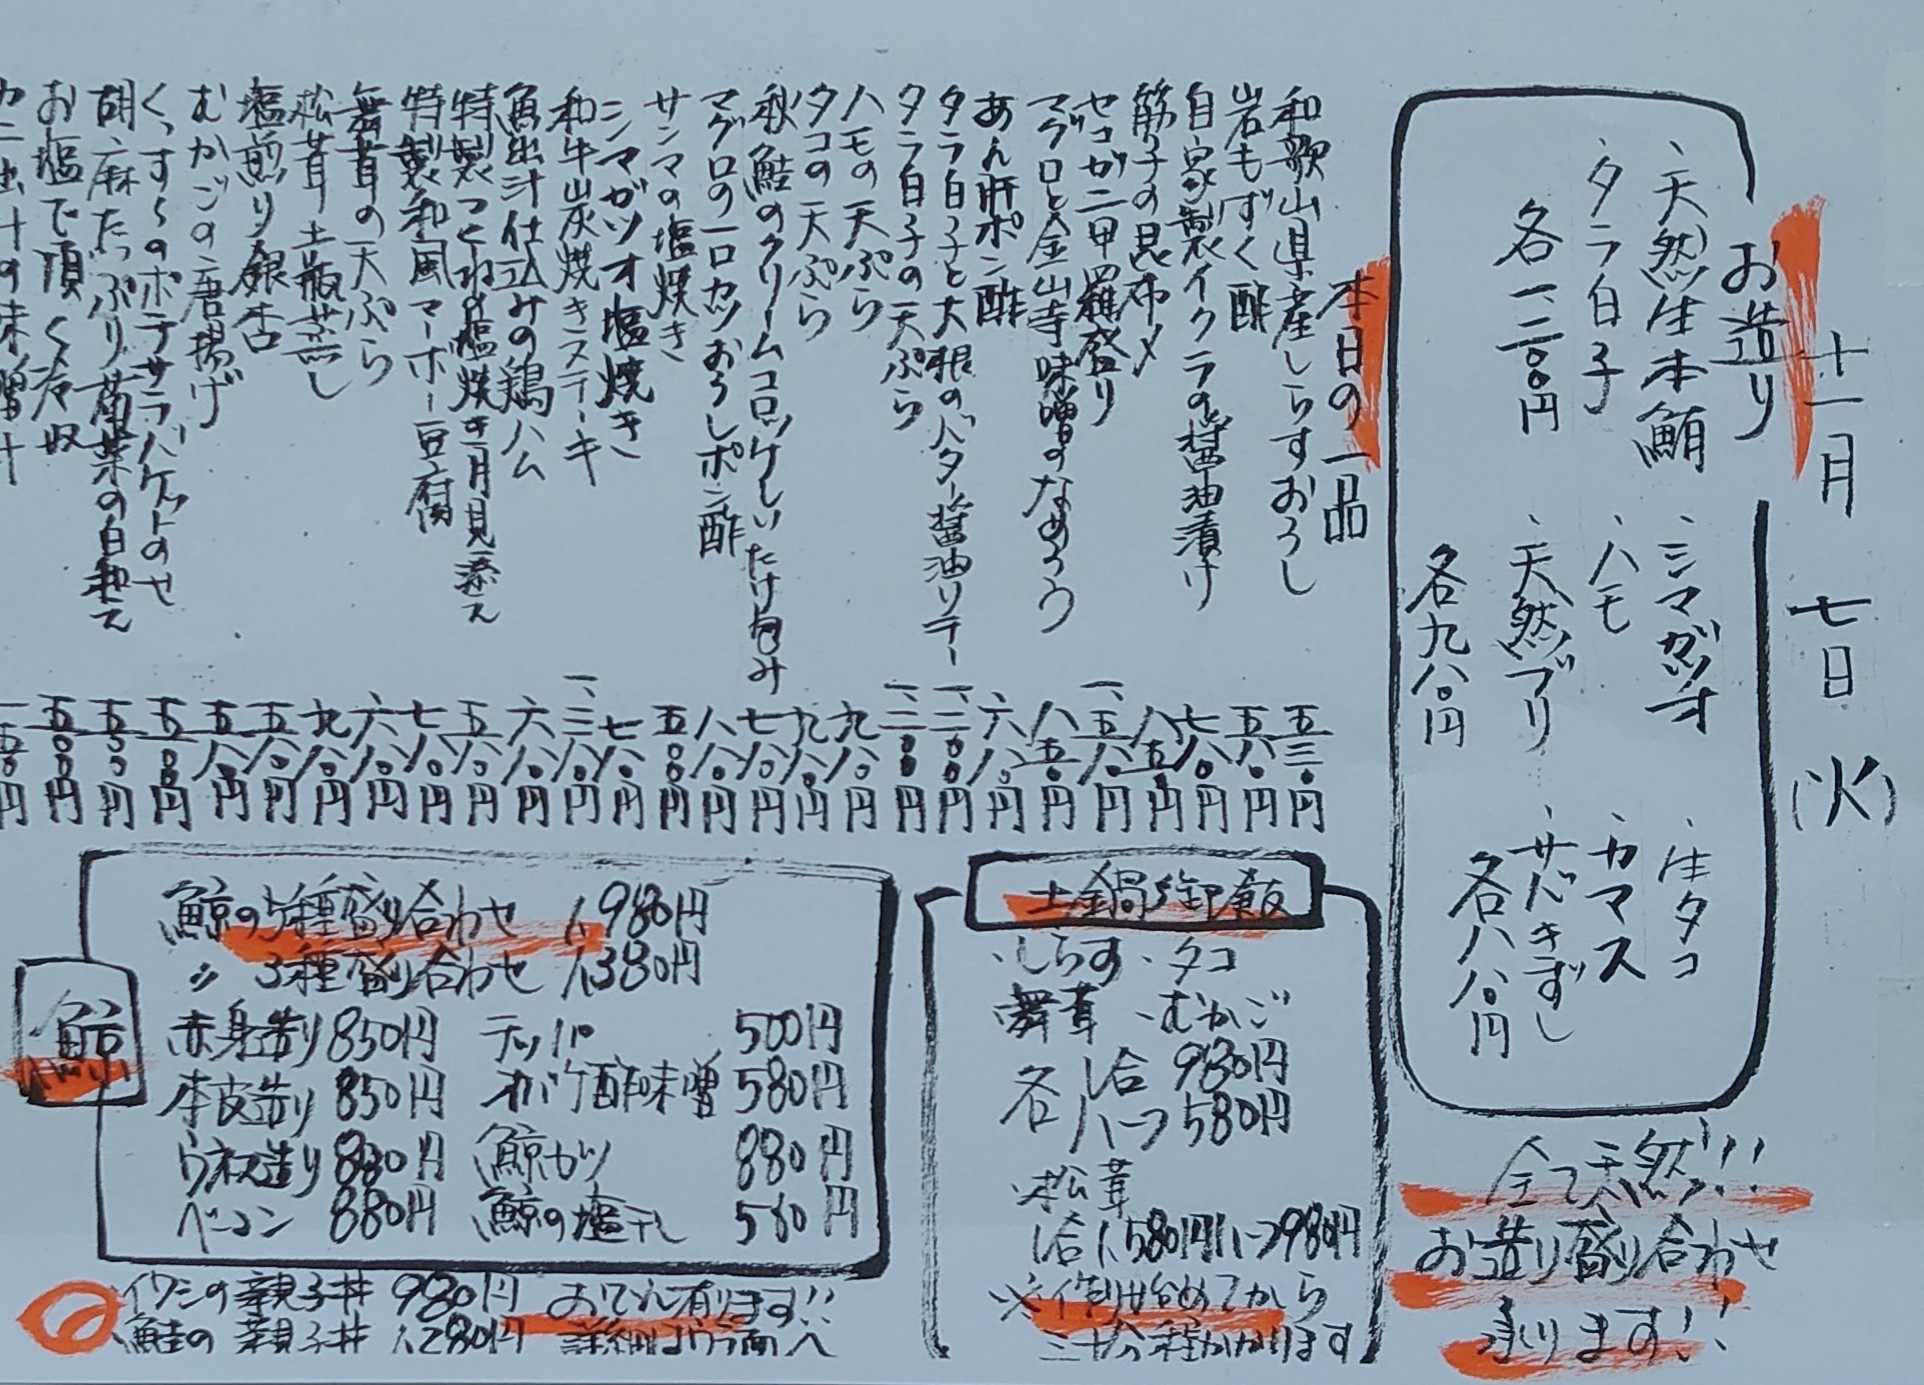 十一月 七日 (火)
お造り
・天然生本鮪
・タラ白子
各一、二〇〇円
・シマガツオ
・ハモ
・天然ブリ
各九八〇円
・生タコ
・カマス
・サバきずし
各八八〇円
全て天然!!
お造り盛り合わせ
承ります!!
本日の一品
和歌山県産しらすおろし 五三〇円
岩もずく酢 五八〇円
自家製イクラの醤油漬け 七八〇円
筋子の昆布〆 八五〇円
セコガニ甲羅盛り 一、五八〇円
マグロと金山寺味噌のなめろう 八五〇円
あん肝ポン酢 六八〇円
タラ白子と大根のバター醤油ソテー 一、二〇〇円
タラ白子の天ぷら 一、二〇〇円
ハモの天ぷら 九八〇円
タコの天ぷら 九八〇円
秋鮭のクリームコロッケしいたけ包み 七八〇円
マグロの一口カツおろしポン酢 八八〇円
サンマの塩焼き
シマガツオ塩焼き 七八〇円
和牛炭焼きステーキ 一、三八〇円
魚出汁仕込みの鶏ハム 六八〇円
特製つくね塩焼き月見添え 五八〇円
特製和風マーボー豆腐 七八〇円
舞茸の天ぷら 六八〇円
松茸土瓶蒸し 九八〇円
塩煎り銀杏 五八〇円
むかごの唐揚げ 五八〇円
ポテサラバケットのせ
胡麻たっぷり菊菜の白和え
お塩で頂く冷奴 五〇〇円
カニ出汁の味噌汁
土鍋御飯
・しらす ・タコ
・舞茸 ・むかご
各 1合 980円
ハーフ 580円
・松茸
1合1,580円ハーフ980円
※作り始めてから
三十分程かかります
鯨
鯨の5種盛り合わせ 1,980円
〃 3種盛り合わせ 1,380円
赤身造り 850円 テッパ 500円
本皮造り 850円 オバケ酢味噌 580円
ウネス造り 880円 鯨カツ 880円
ベーコン 880円 鯨の塩干し 580円
イワシの親子丼 980円
鮭の親子丼 1,280円
おでん有ります!!
詳細はウラ面へ